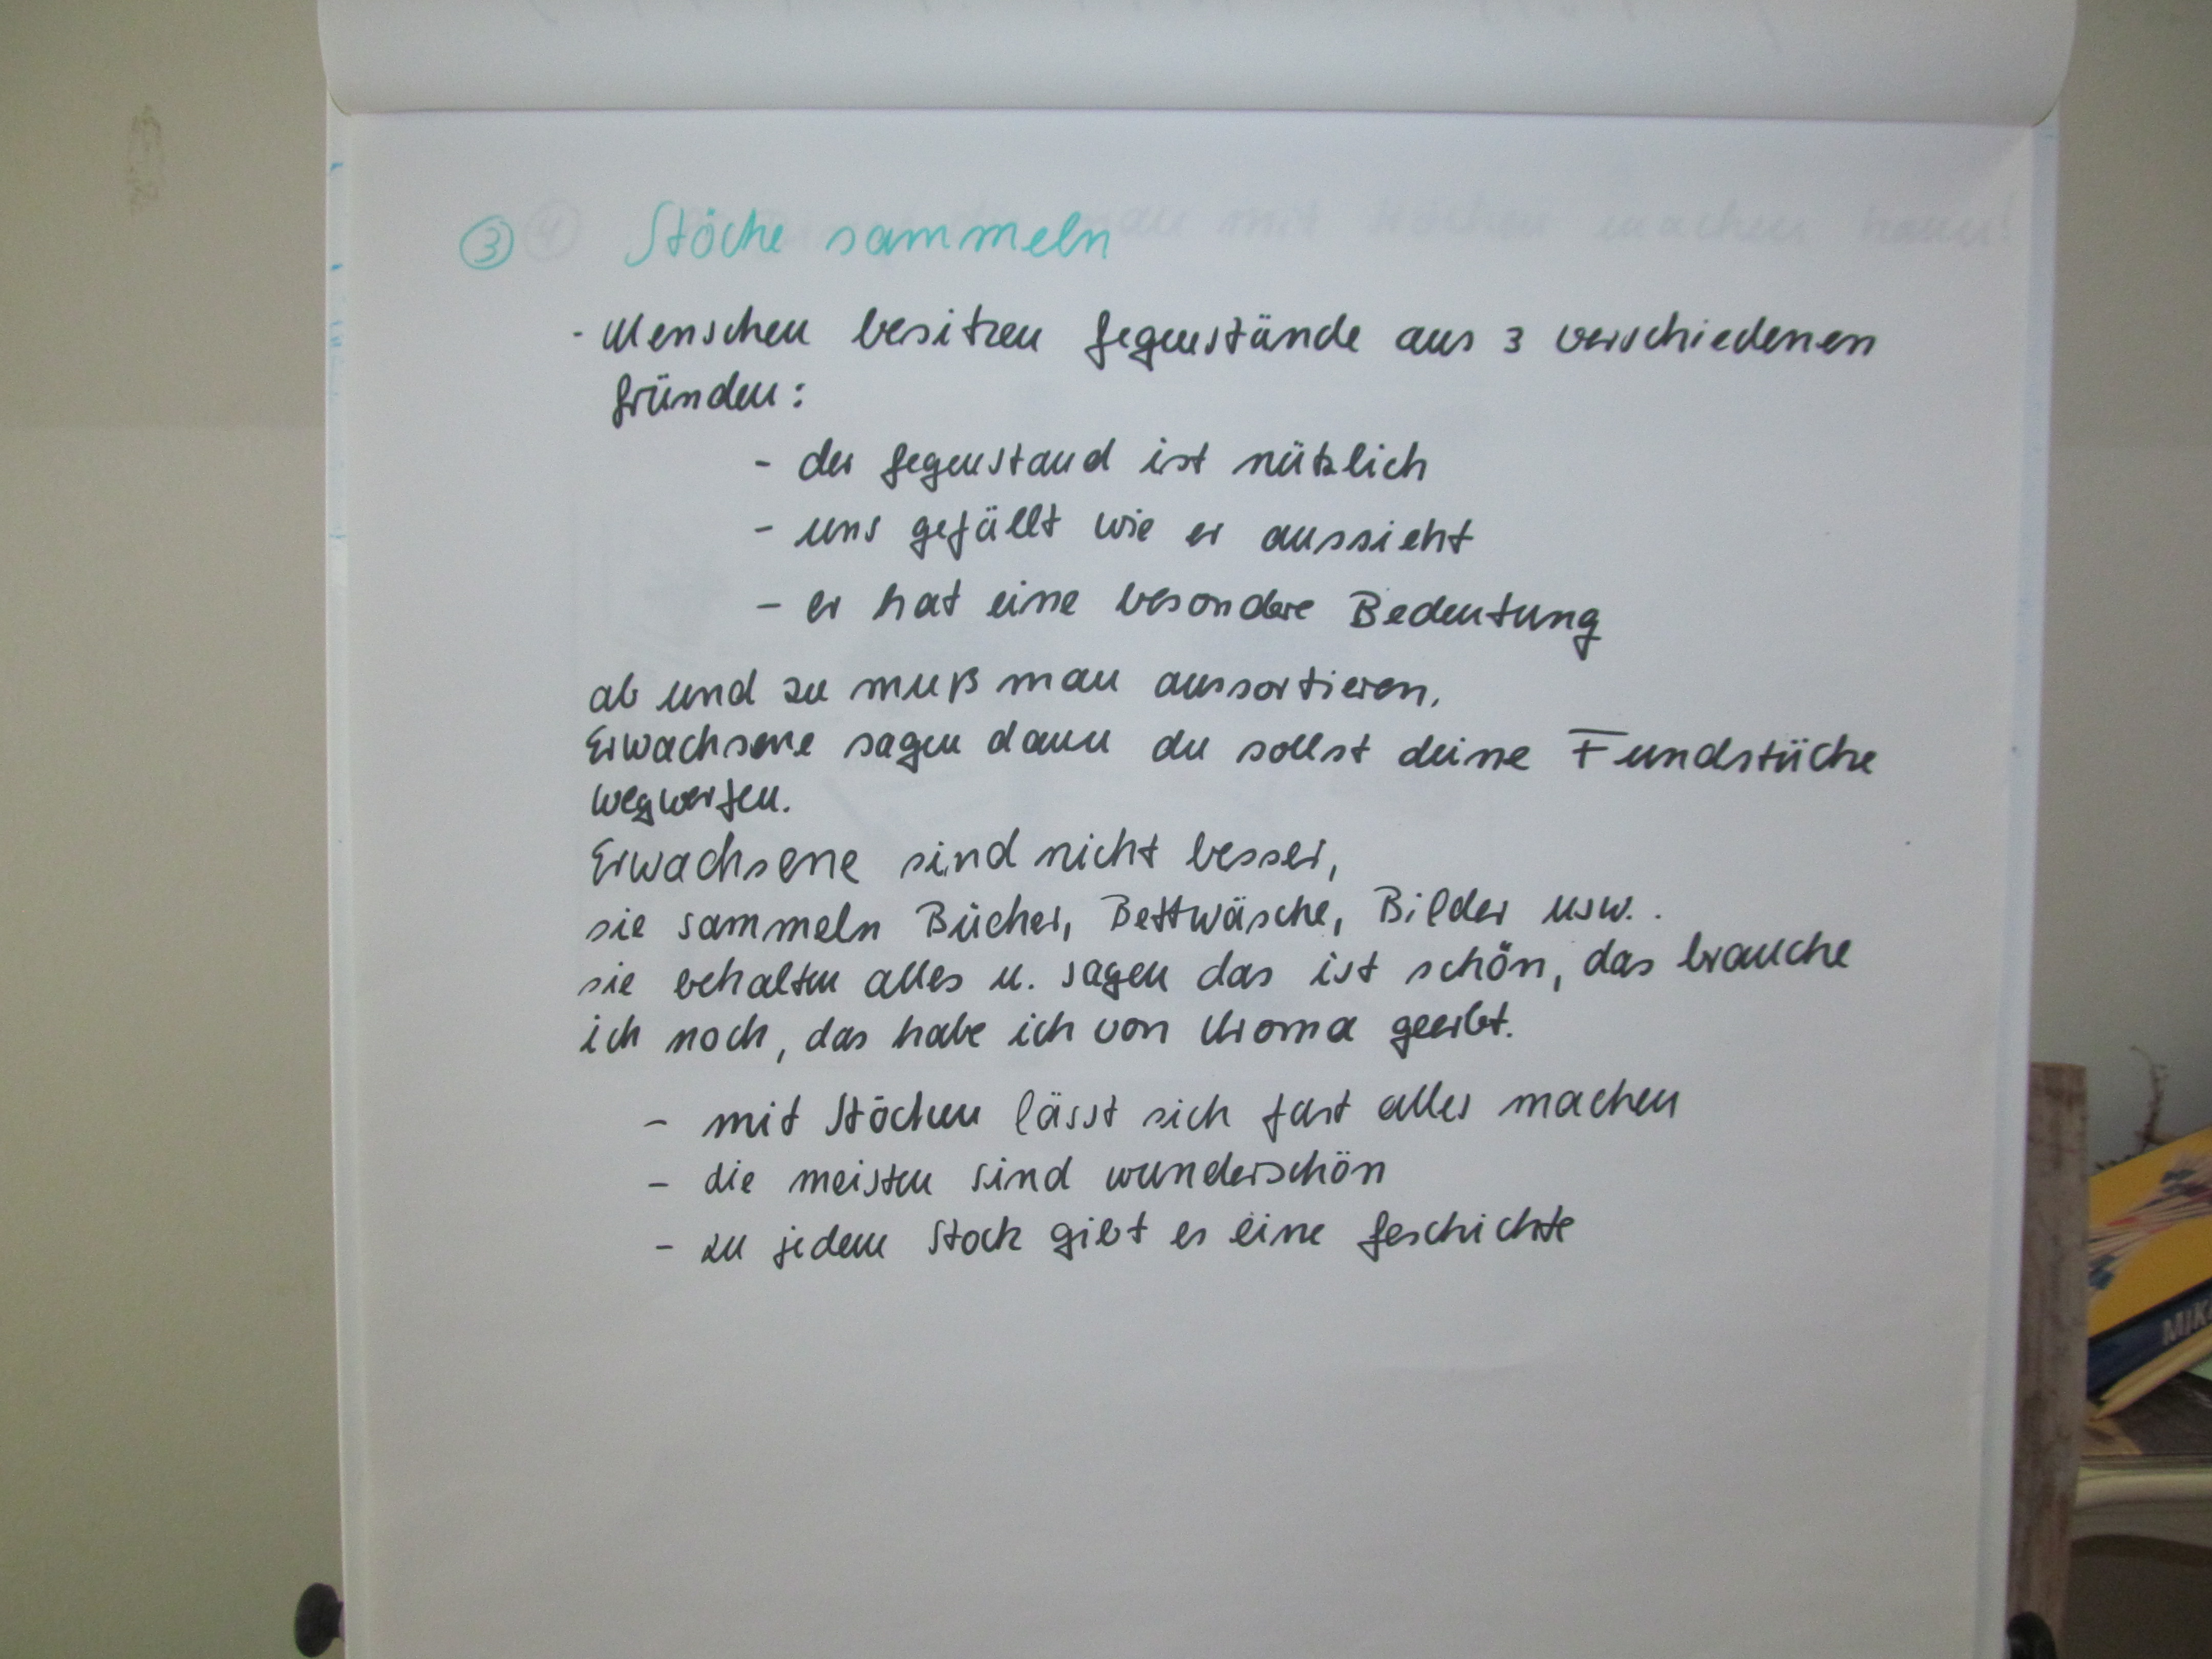 ③ Stöcke sammeln
- Menschen besitzen Gegenstände aus 3 verschiedenen
Gründen:
- der Gegenstand ist nützlich
- uns gefällt wie er aussieht
- er hat eine besondere Bedeutung
ab und zu muß man aussortieren,
Erwachsene sagen dann du sollst deine Fundstücke
wegwerfen.
Erwachsene sind nicht besser,
sie sammeln Bücher, Bettwäsche, Bilder usw. .
sie behalten alles u. sagen das ist schön, das brauche
ich noch, das habe ich von Uroma geerbt.
- mit Stöcken lässt sich fast alles machen
- die meisten sind wunderschön
- zu jedem Stock gibt es eine Geschichte
MIK